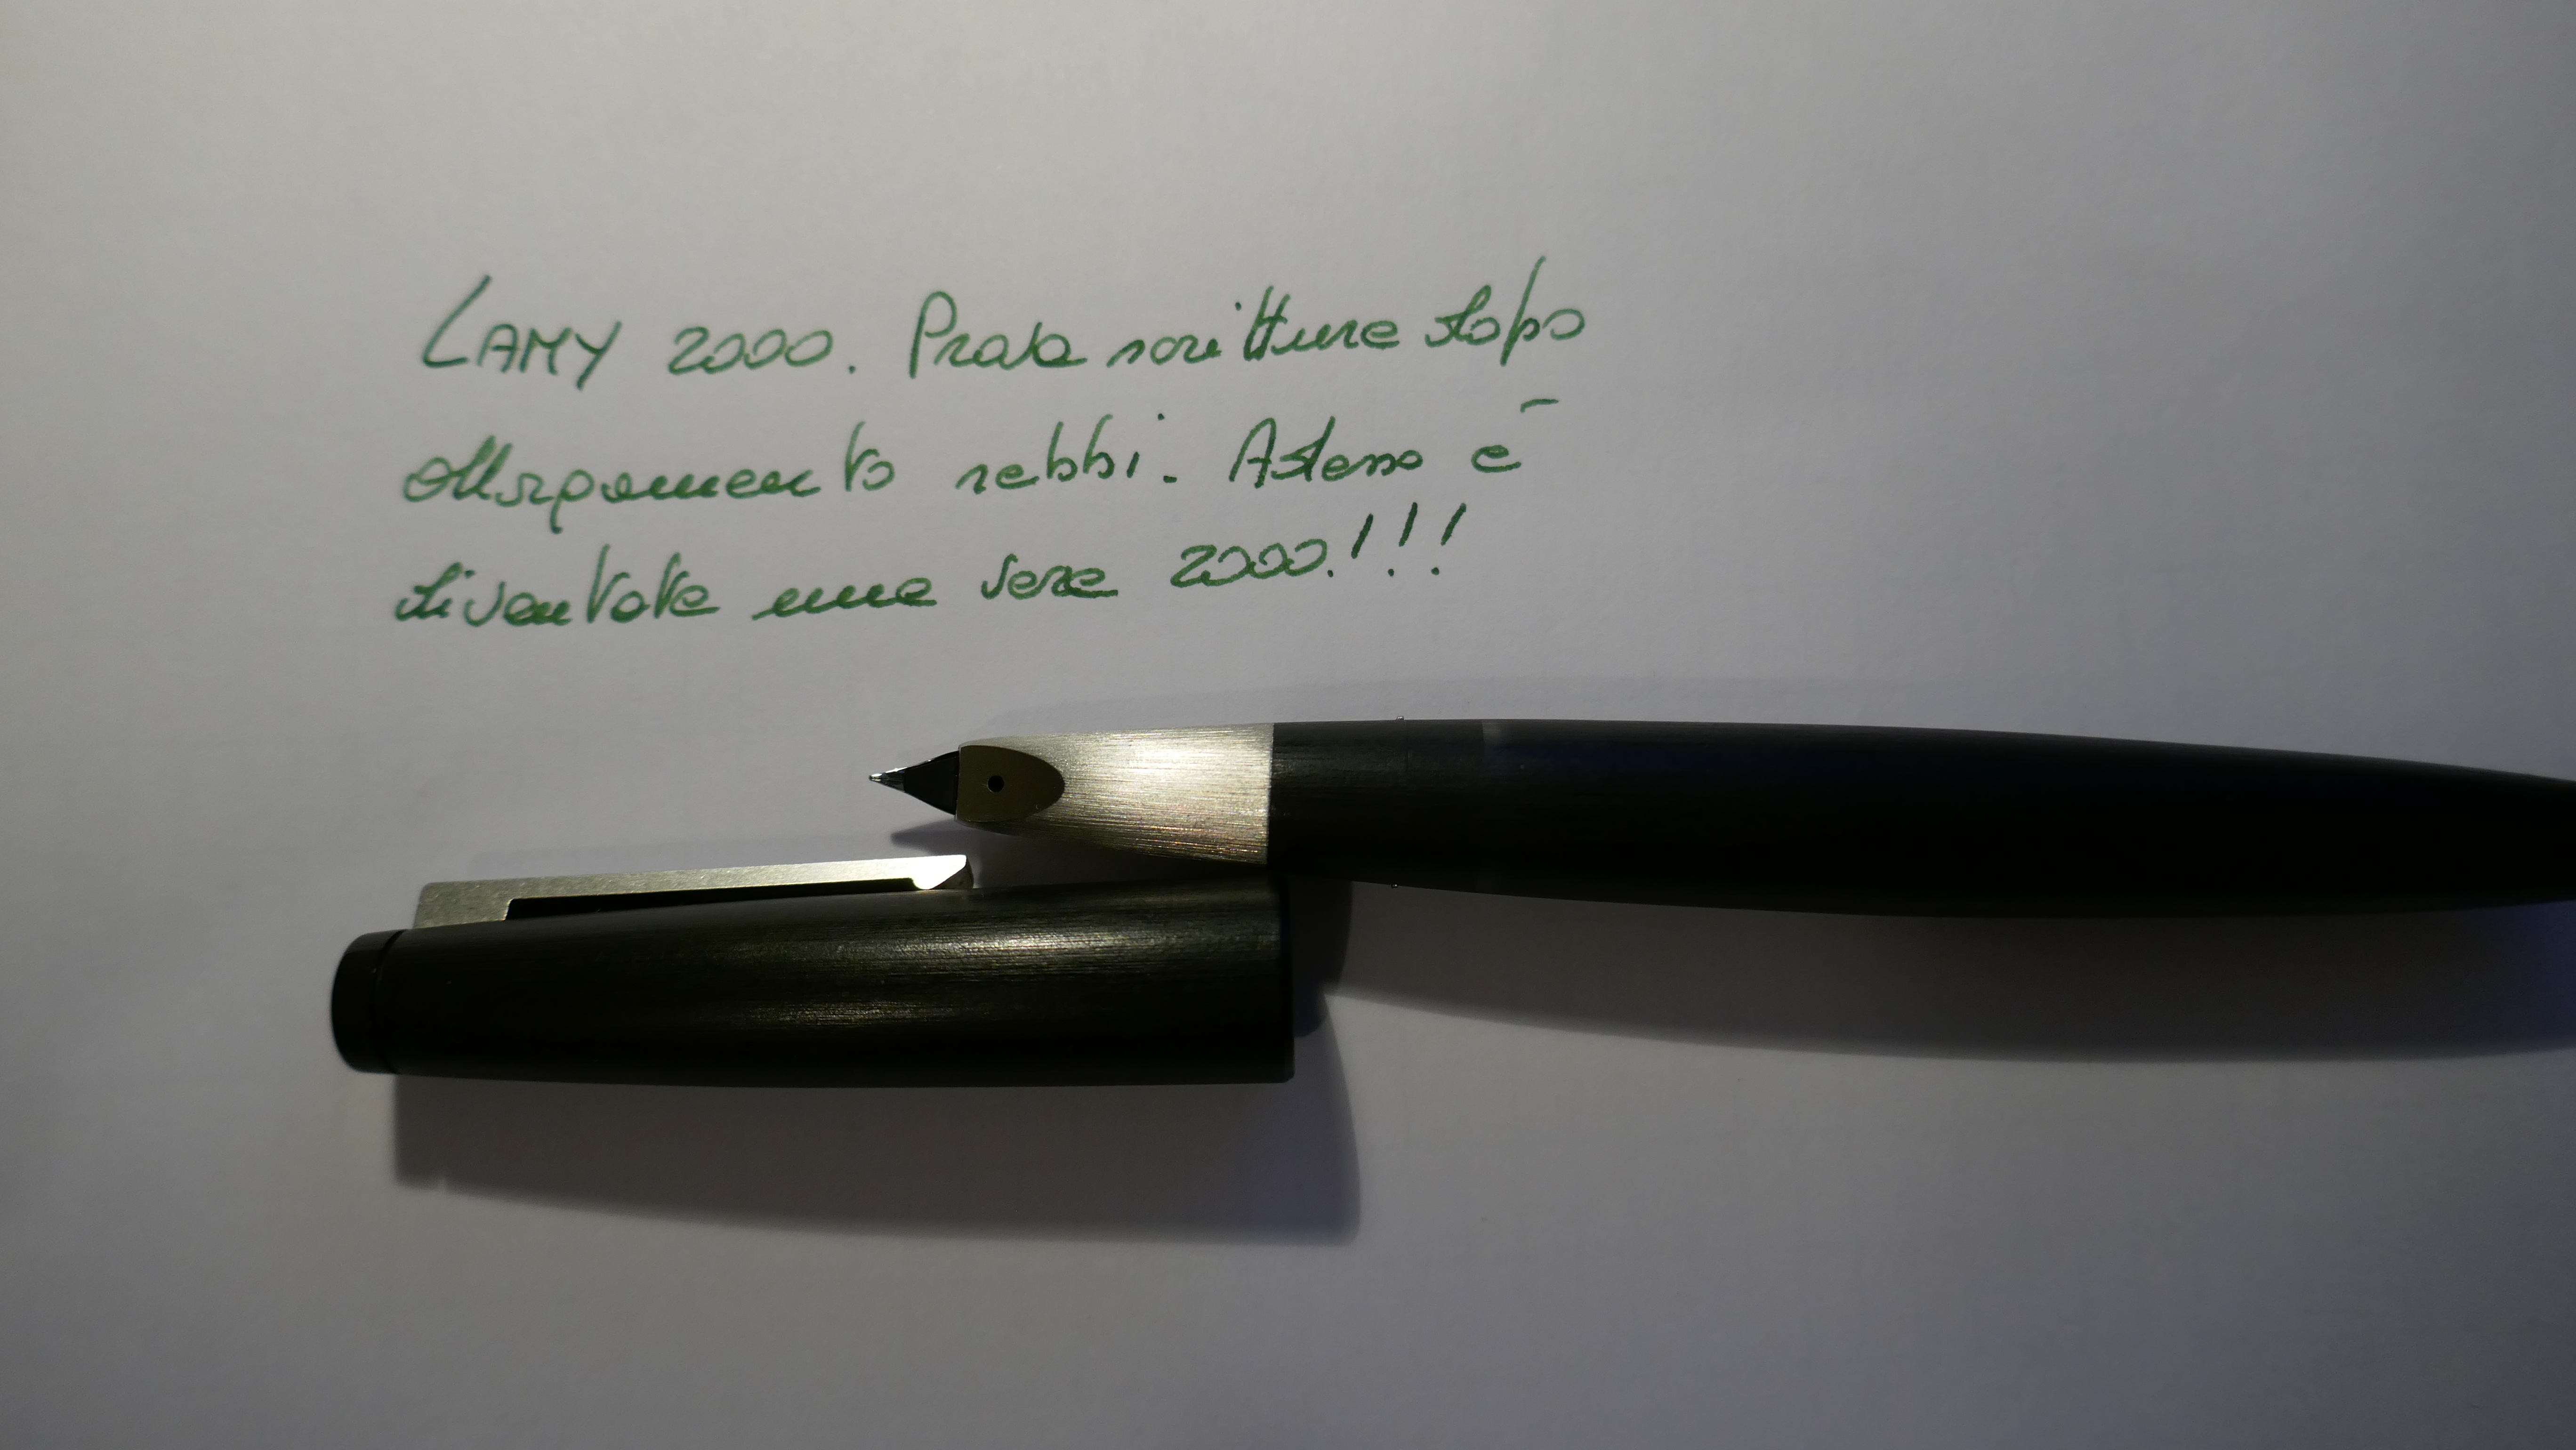 LAMY 2000. Prova scrittura dopo
allargamento rebbi. Adesso è
diventata una vera 2000!!!